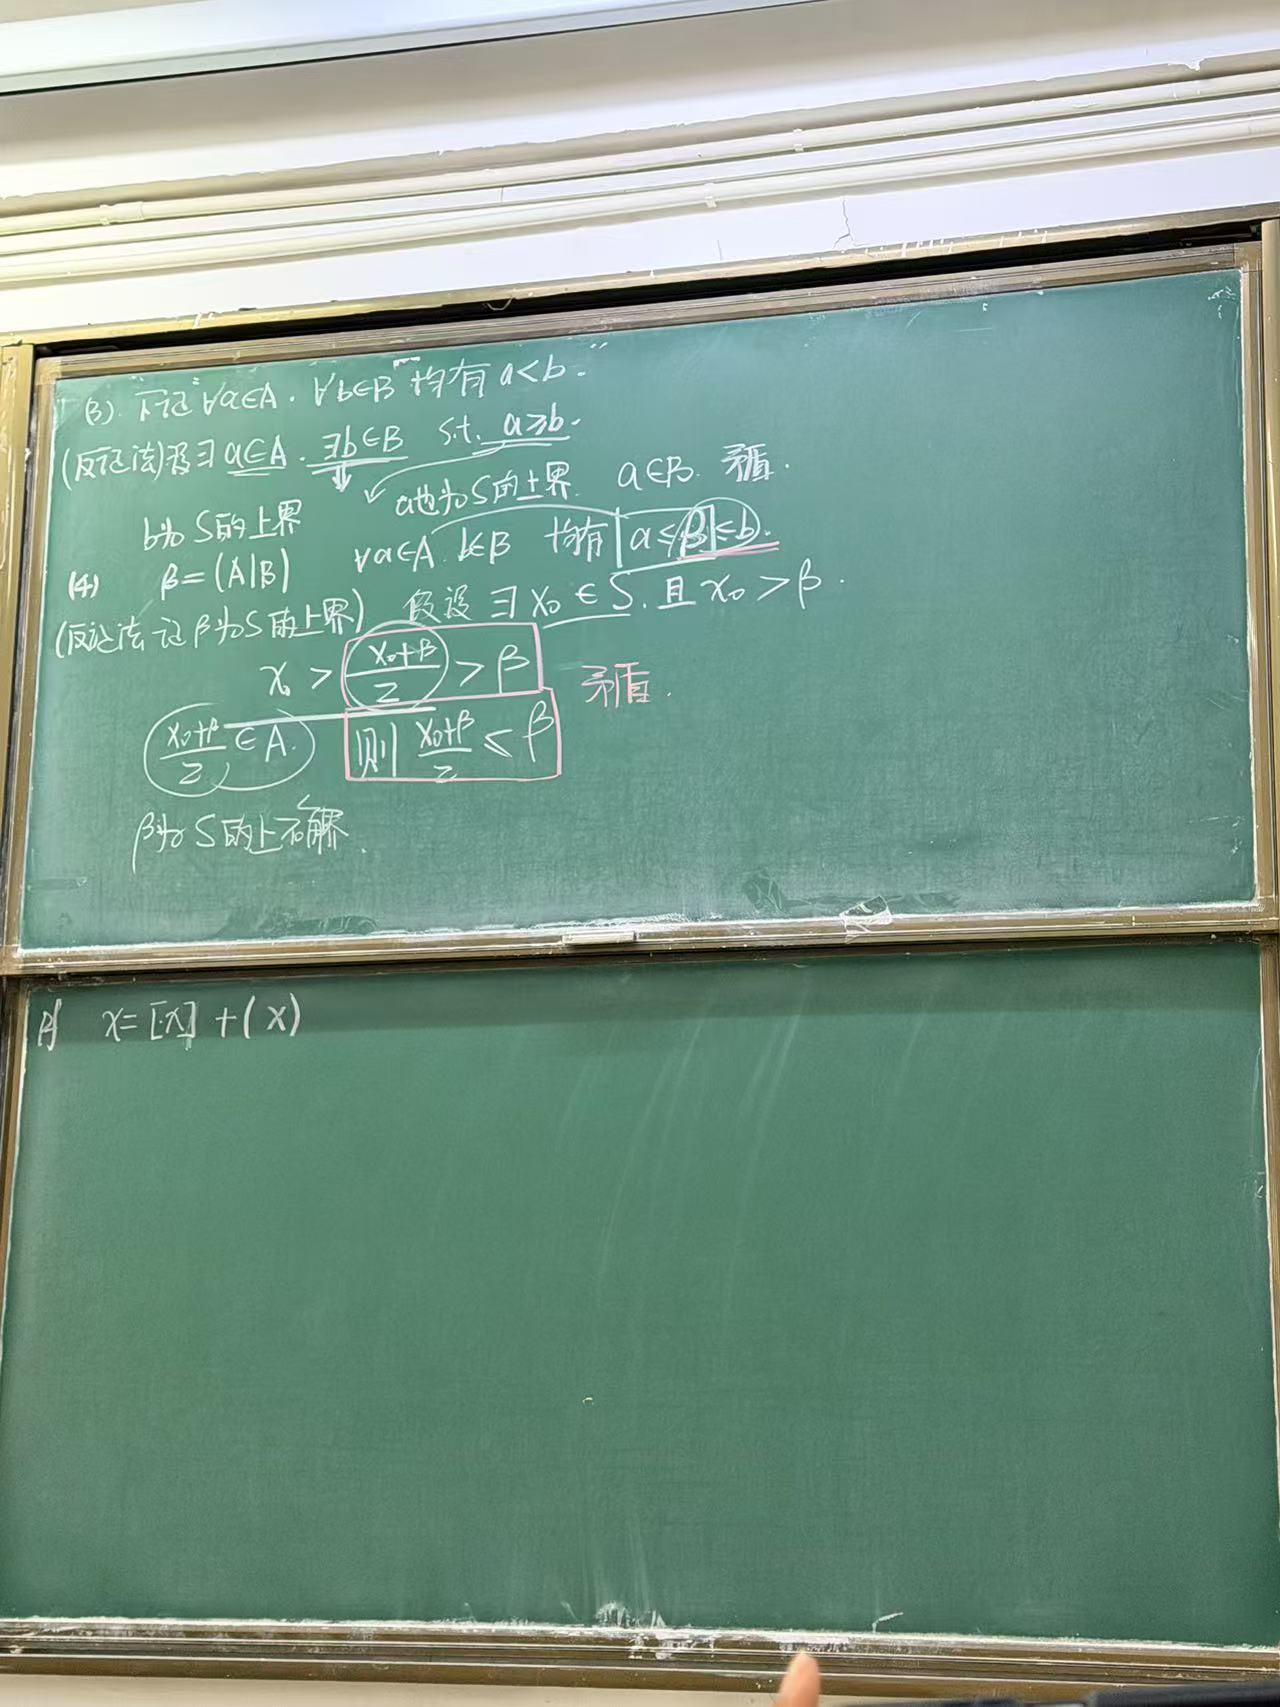 (3). 下证"∀a∈A. ∀b∈B"均有 a<b.
(反证法) 设∃ a∈A. ∃b∈B s.t. a≥b.
b为 S的上界 a也为S的上界. a∈B. 矛盾.
(4) β=(A|B) ∀a∈A. b∈B 均有 a≤β≤b.
(反证法 证β为S的上界) 假设 ∃ x₀∈S. 且 x₀>β.
x₀ > (x₀+β)/2 > β 矛盾.
(x₀+β)/2 ∈A. 则 (x₀+β)/2 ≤ β
β为 S的上 界.
x=[x]+(x)